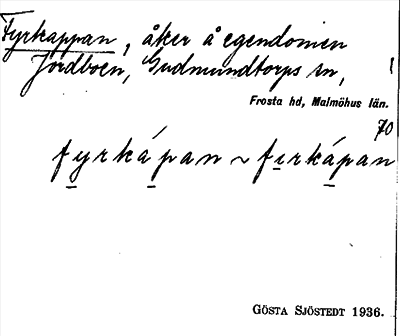 Fyrkappan, åker å egendomen
Jordboen, Gudmundtorps sn,
Frosta hd, Malmöhus län.
70
fyrkápan ~ firkápan
GÖSTA SJÖSTEDT 1936.